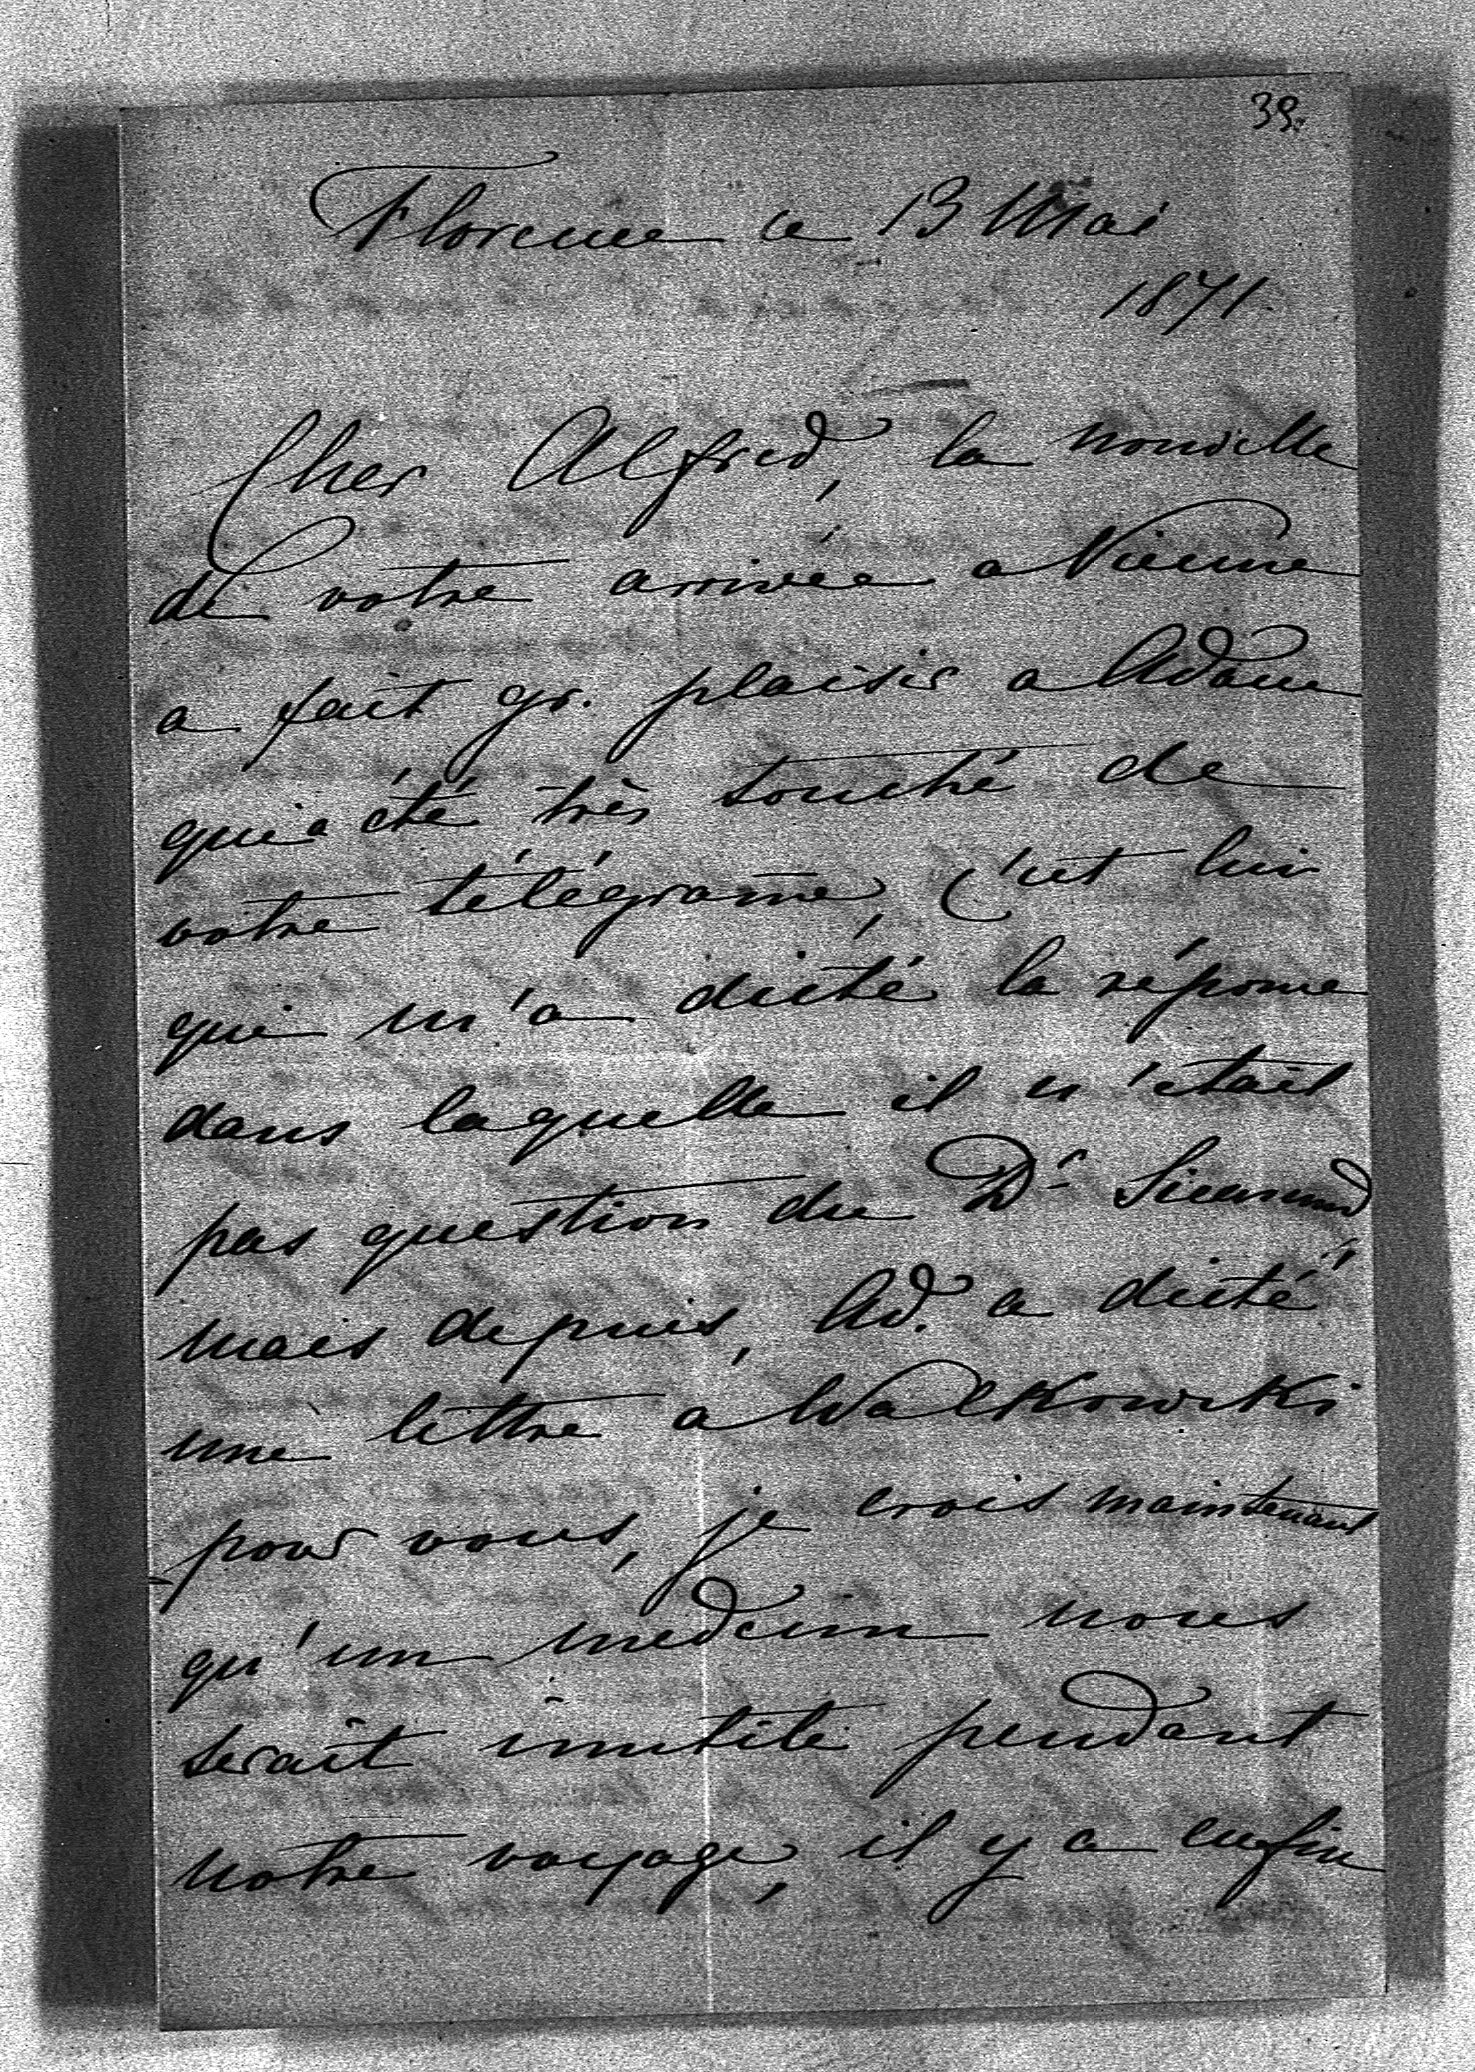 39.
Florence ce 13 Mai
1871.
Cher Alfred, la nouvelle
de votre arrivée a Vienne
a fait gr. plaisir a Adame
qui a été très touché de
votre télégrame, c'est lui
qui m'a dicté la réponse
dans laquelle il n'était
pas question du Dr
mais depuis, Ad. a dicté
une lettre a Walkowski
pour vous, je crois maintenant
qu'un medecin nous
serait inutile pendant
notre voyage, il y a enfin